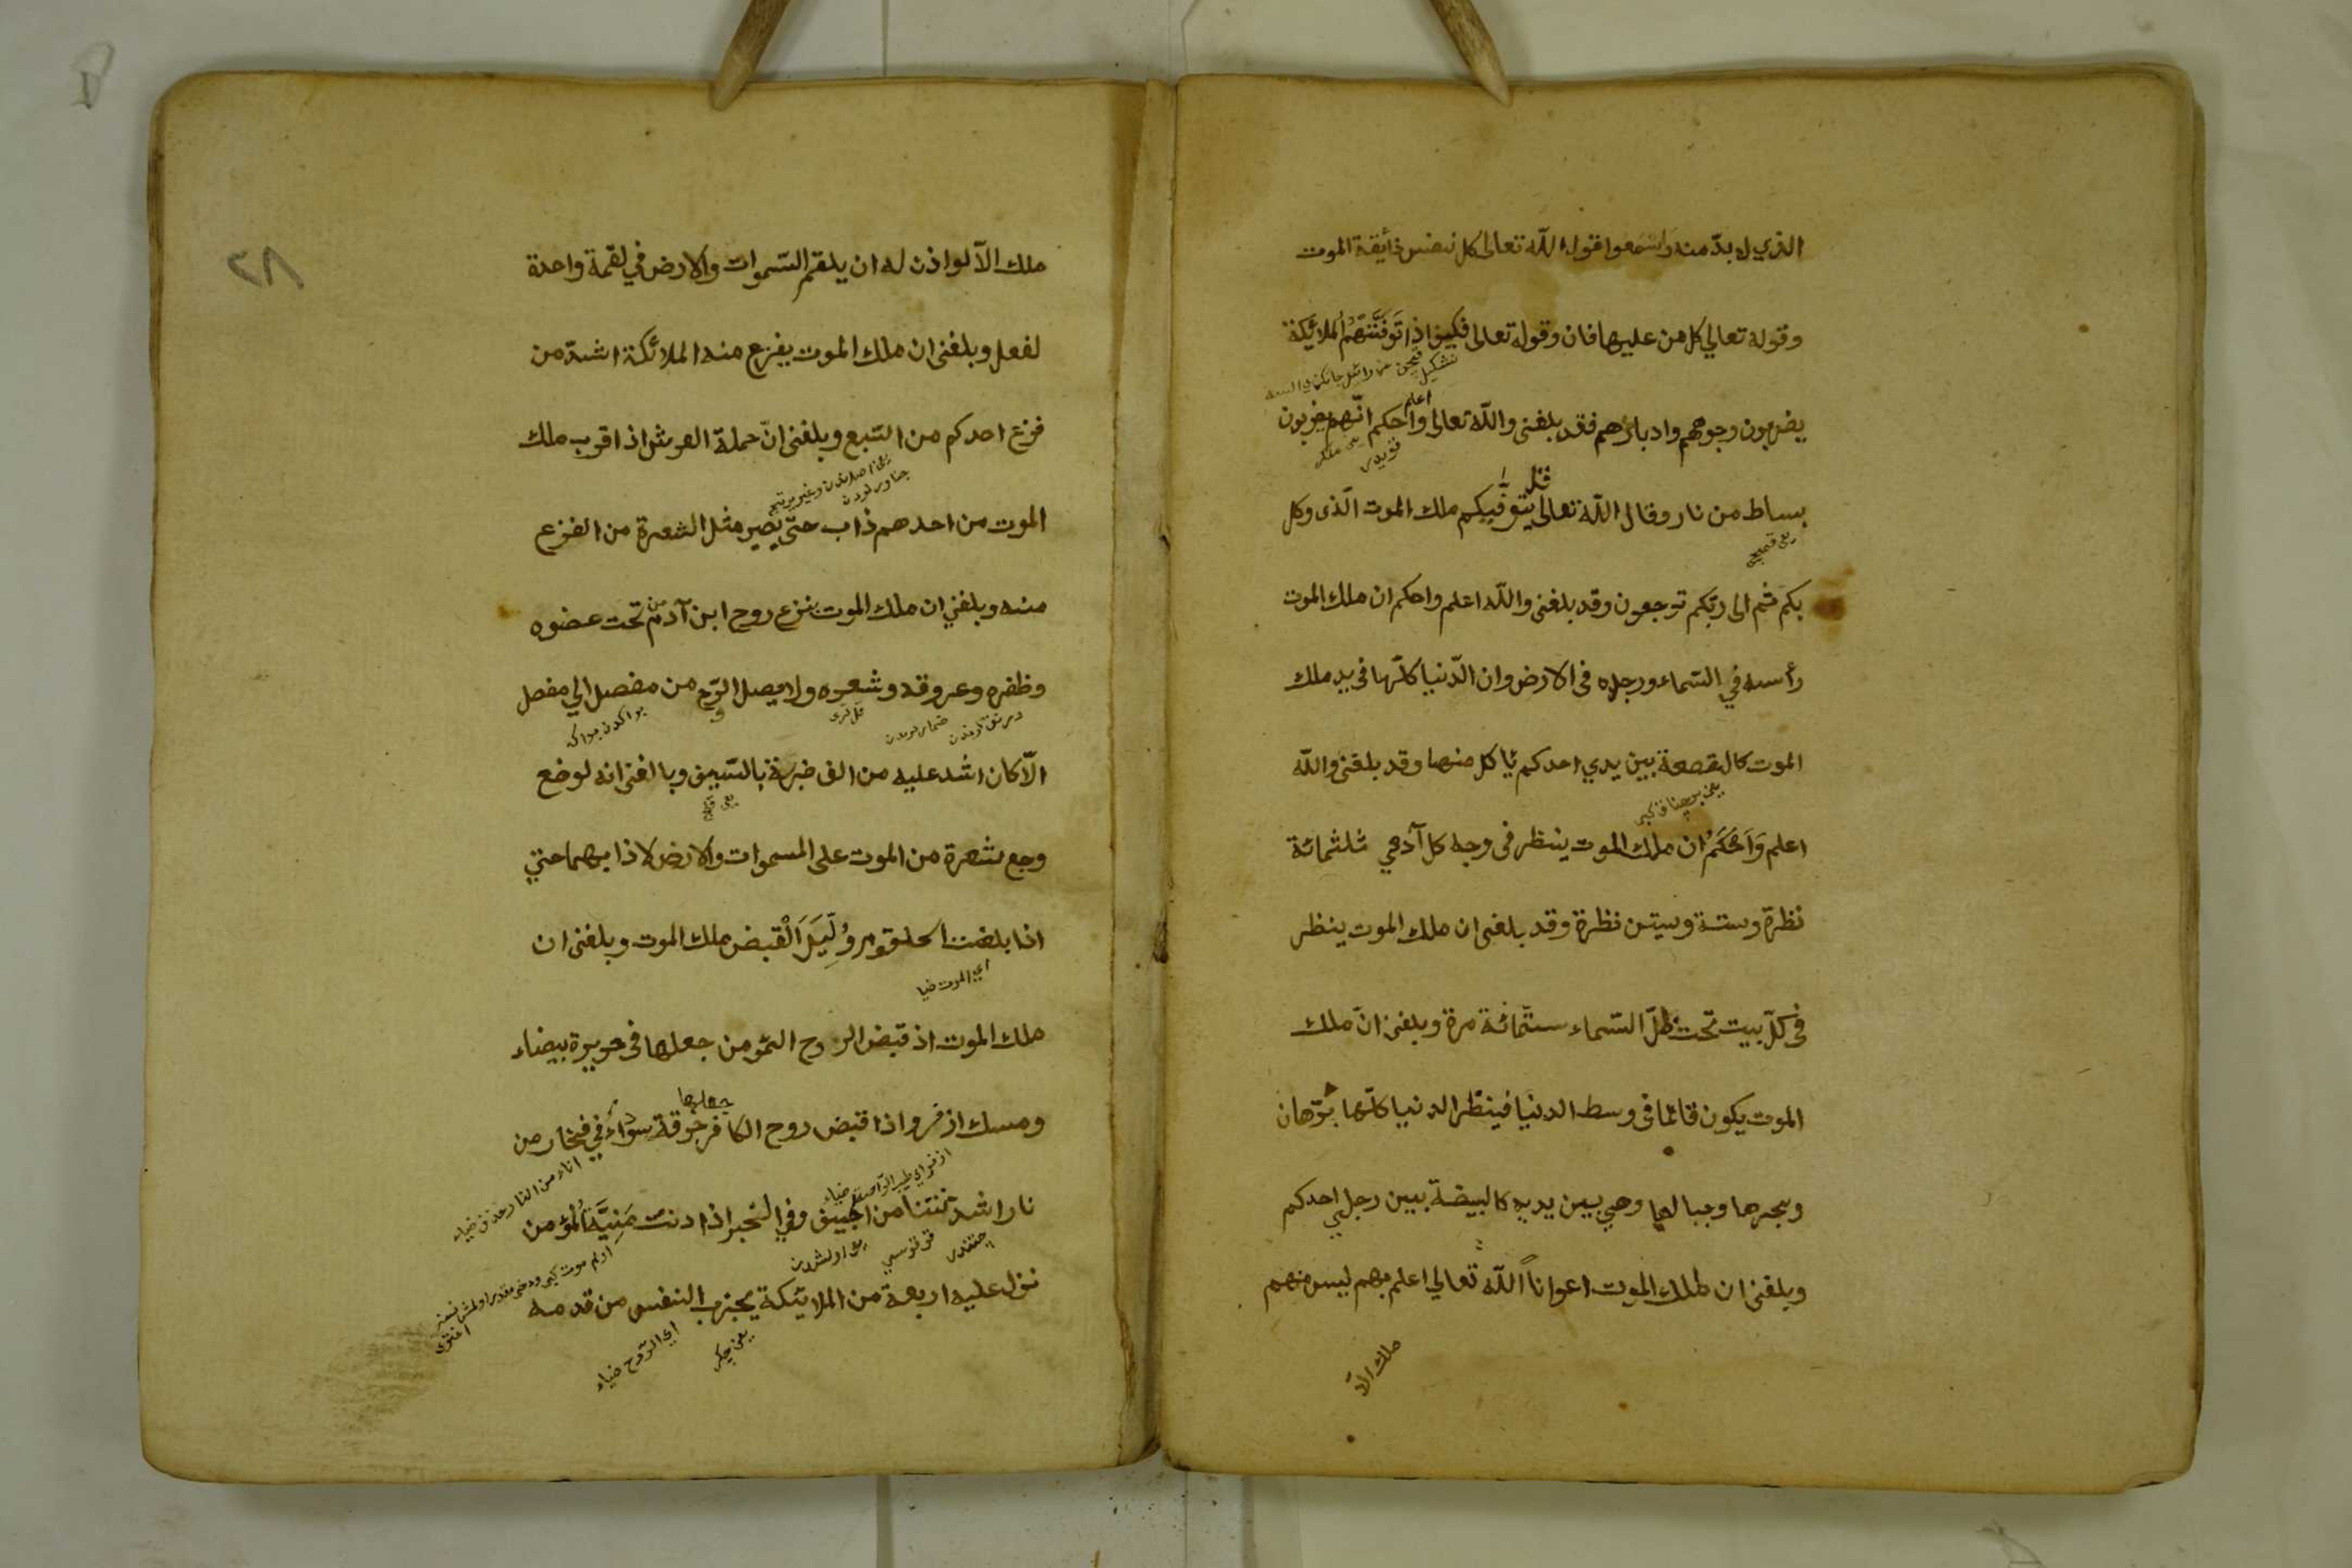 الذي لا بدّ منه واسمعوا قول اللّه تعالى كل نفس ذائقة الموت
وقوله تعالي كل من عليها فان وقوله تعالى فكيف اذا تَوَفَّتْهُمُ الملائِكة
يضربون وجوههم وادبارهم فقد بلغنى واللّه تعالى اعلم واحكم انّهم يضربون
بسياط من نار وقال اللّه تعالى قل يتوفّيكم ملك الموت الّذى وكل
يعنى قمچى
بكم ثم الى ربّكم ترجعون وقد بلغنى واللّه اعلم واحكم ان ملك الموت
رأسه في السّماء ورجله فى الارض وان الدّنيا كلّها فى يد ملك
الموت كالقصعة بين يدي احدكم يأكل منها وقد بلغنى واللّه
اعلم وَاَحْكَمُ ان ملك الموت ينظر فى وجه كل آدمي ثلثمائة
نظرة وستة وستين نظرة وقد بلغنى ان ملك الموت ينظر
فى كلّ بيت تحت ظلّ السّماء ستّمائة مرة وبلغنى انّ ملك
الموت يكون قائما فى وسط الدنيا فينظر الدنيا كلّها برّها
وبحرها وجبالها وهي بين يديه كالبيضة بين رجلي احدكم
وبلغنى ان لملك الموت اعواناً اللّه تعالي اعلم بهم ليس منهم
ملك الّا
٢٨
ملك الاّ لو اذن له ان يلقم السّموات والارض في لقمة واحدة
لفعل وبلغنى ان ملك الموت يفزع منه الملائكة اشدّ من
فزع احدكم من السّبع وبلغنى انّ حملة العرش اذا قرب ملك
الموت من احدهم ذاب حتّى يصير مثل الشعرة من الفزع
منه وبلغني ان ملك الموت ينزع روح ابن آدم من تحت عضوه
وظفره وعروقه وشعره ولا يصل الرّوح من مفصل الي مفصل
الّا كان اشد عليه من الف ضربة بالسّيف وبلغنى انه لو وضع
وجع شعرة من الموت على السموات والارض لاذابهما حتي
اذا بلغت الحلقوم وُلِّيَ الْقبض ملك الموت وبلغنى ان
اي الموت ضيا
ملك الموت اذ قبض الروح المؤمن جعلها فى حريرة بيضاء
ومسك ازفر واذا قبض روح الكافر جعلها خرقة سوداء في فخار من
نار اشد نتنا من الجيف وفي الخبر اذا دنت مَنِيَّة الْمُؤمن
نزل عليه اربعة من الملائكة يجذب النفس من قدمه
اي الرّوح ضياء